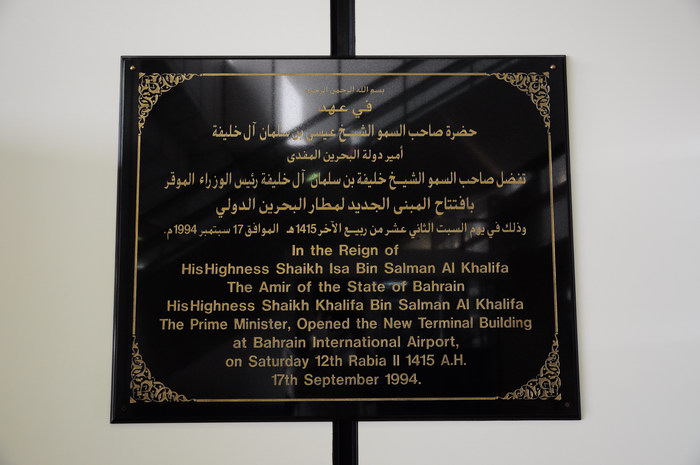 بسم الله الرحمن الرحيم
في عهد
حضرة صاحب السمو الشيخ عيسى بن سلمان آل خليفة
أمير دولة البحرين المفدى
تفضل صاحب السمو الشيخ خليفة بن سلمان آل خليفة رئيس الوزراء الموقر
بافتتاح المبنى الجديد لمطار البحرين الدولي
وذلك في يوم السبت الثاني عشر من ربيع الآخر 1415 هـ الموافق 17 سبتمبر 1994 م.
In the Reign of
His Highness Shaikh Isa Bin Salman Al Khalifa
The Amir of the State of Bahrain
His Highness Shaikh Khalifa Bin Salman Al Khalifa
The Prime Minister, Opened the New Terminal Building
at Bahrain International Airport,
on Saturday 12th Rabia II 1415 A.H.
17th September 1994.